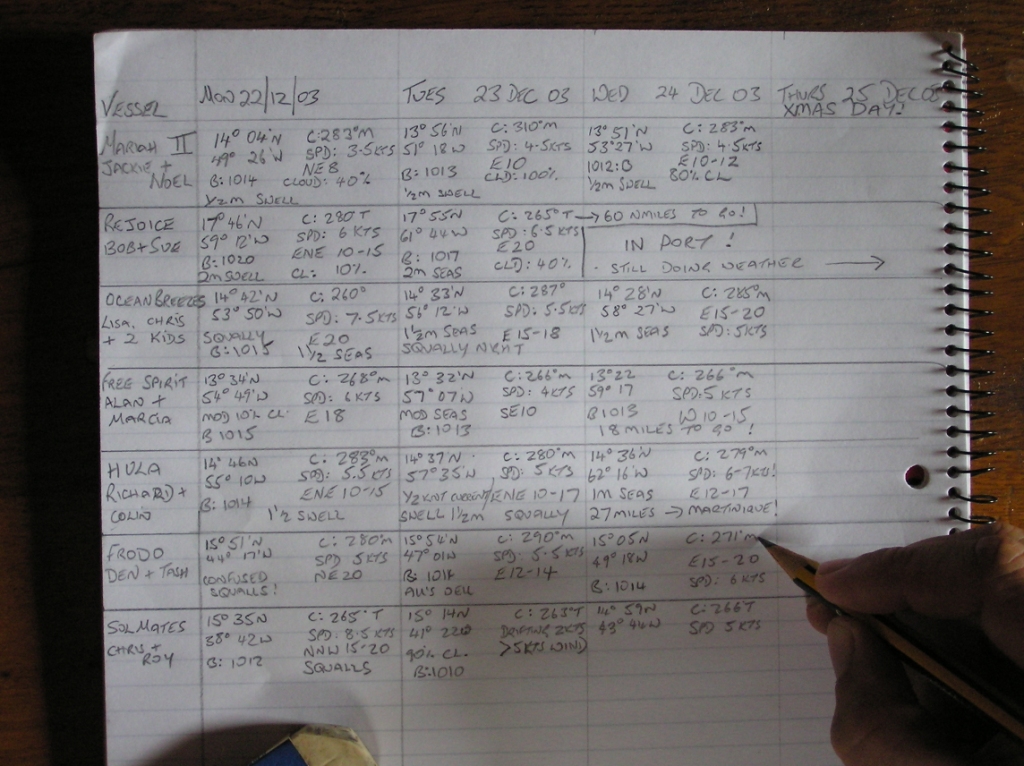 VESSEL
MON 22/12/03
TUES 23 DEC 03
WED 24 DEC 03
THURS 25 DEC 03
XMAS DAY!
MARIAH II
JACKIE +
NOEL
14° 04'N C:283°M
49° 26'W SPD: 3.5KTS
NE8
B:1014 CLOUD: 40%
1/2M SWELL
13° 56'N C: 310°M
51° 18W SPD: 4.5KTS
E10
B: 1013 CLD: 100%
1/2M SWELL
13° 51'N C: 283°M
53°27'W SPD: 4.5KTS
1012:B E10-12
1/2M SWELL 80% CL
REJOICE
BOB+SUE
17° 46'N C: 280T
59° 12'W SPD: 6 KTS
B:1020 ENE 10-15
2M SWELL CL: 10%
17° 55N C: 265°T → 60 NMILES TO GO!
61° 44W SPD: 6.5KTS
E20
B: 1017
2M SEAS CLD: 40%
IN PORT!
- STILL DOING WEATHER →
OCEAN BREEZES
LISA, CHRIS
+ 2 KIDS
14° 42'N C: 260°
53° 50'W SPD: 7.5KTS
SQUALLY E20
B:1015 1 1/2 SEAS
14° 33'N C: 287°
56° 12'W SPD: 5.5KTS
1 1/2M SEAS E15-18
SQUALLY NIGHT
14° 28'N C: 285°M
58° 27'W E15-20
1 1/2M SEAS SPD: 5KTS
FREE SPIRIT
ALAN +
MARCIA
13° 34'N C: 268°M
54° 49'W SPD: 6KTS
MOD 10% CL. E18
B 1015
13° 32'N C:266°M
57° 07W SPD: 4KTS
MOD SEAS SE10
B:1013
13°22 C: 266°M
59° 17 SPD:5 KTS
B1013 W 10-15
18 MILES TO GO!
HULA
RICHARD +
COLIN
14° 46N C: 283°M
55° 10W SPD: 5.5KTS
ENE 10-15
B: 1014
1 1/2 SWELL
14° 37'N C: 280°M
57° 35'N SD: 5KTS
1/2 KNT CURRENT/ENE 10-17
SWELL 1 1/2M SQUALLY
14° 36'N C: 279°M
62° 16'W SPD: 6-7KTS!
1M SEAS E12-17
27MILES → MARTINIQUE!
FRODO
DEN + TASH
15° 51'N C: 280°M
44° 17'W SPD 5KTS
CONFUSED NE20
SQUALLS!
15° 54'N C: 290°M
47° 01W SPD: 5.5KTS
E12-14
15° 05N C: 271°M
49° 18W E15-20
B: 1014 SPD: 6KTS
SOLMATES
CHRIS +
ROY
15° 35N C: 265°T
38° 42W SPD: 8.5KTS
NNW 15-20
B: 1012 SQUALLS
15° 14N C: 263°T
41° 22W DRIFTING 2KTS
90% CL. >5KTS WIND
B:1010
14° 59N C:266T
43° 44W SPD 5KTS